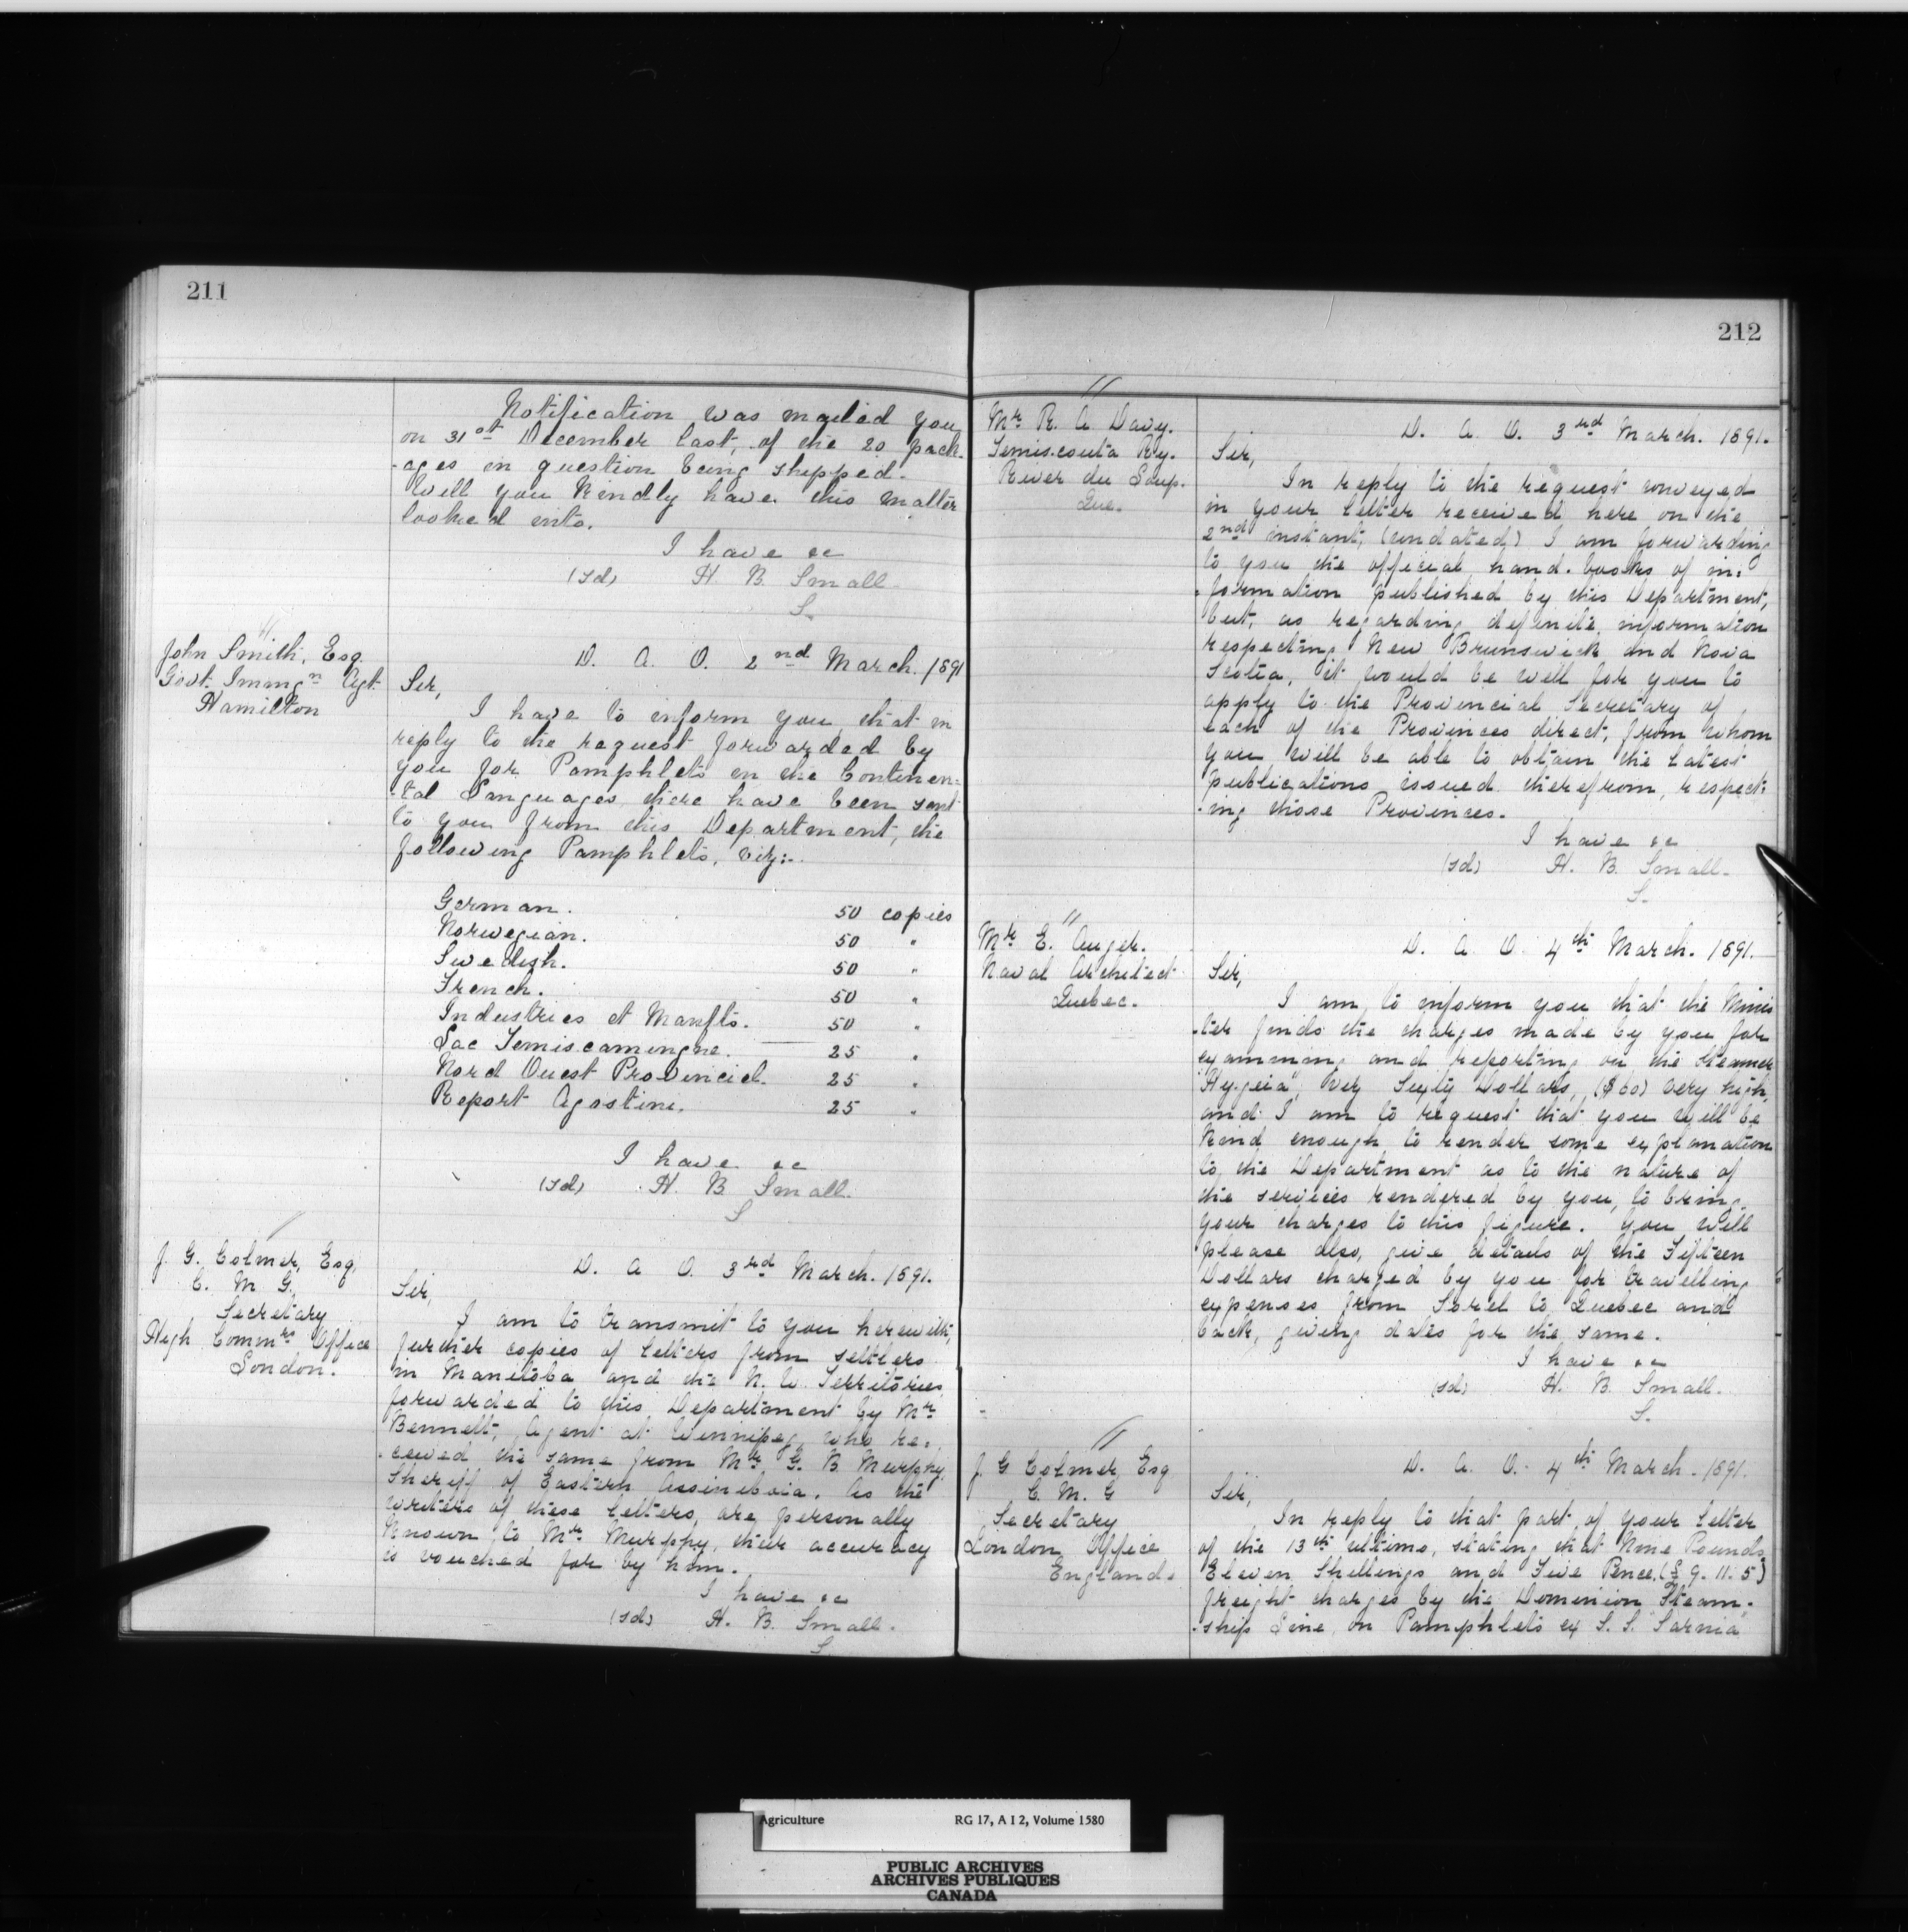 211
Notification was mailed you
on 31st December last, of the 20 pack-
-ages in question being shipped.
Will you kindly have this matter
looked into.
I have &c
(sd) H. B. Small
S.
John Smith, Esq.
Govt. Immgn Agt.
Hamilton
D. A. O. 2nd March. 1891
Sir,
I have to inform you, that in
reply to the request forwarded by
you for Pamphlets in the Continen-
-tal Languages there have been sent
to you from this Department, the
following Pamphlets, viz:-
German. 50 copies
Norwegian. 50 "
Swedish. 50 "
French. 50 "
Industries et Manfts. 50 "
Lac Temiscamingue. 25 "
Nord Ouest Provincial. 25 "
Report Agostini. 25 "
I have &c
(sd) H. B. Small.
S
J. G. Colmer, Esq,
C. M. G.
Secretary
High Commrs Office
London.
D. A. O. 3rd March. 1891.
Sir,
I am to transmit to you herewith,
further copies of letters from settlers
in Manitoba and the N. W. Territories,
forwarded to this Department by Mr
Bennett, Agent at Winnipeg, who re-
-ceived the same from Mr G. B. Murphy,
Sheriff of Eastern Assiniboia. As the
writers of these letters, are personally
known to Mr Murphy, their accuracy
is vouched for by him.
I have &c
(sd) H. B. Small.
S
212
Mr R. A. Davy.
Temiscouta Ry.
River du Loup.
Que.
D. A. O. 3rd March. 1891.
Sir,
In reply to the request conveyed
in your letter received here on the
2nd instant, (undated) I am forwarding
to you the official hand-books of in-
-formation published by this Department,
but, as regarding definite information
respecting New Brunswick and Nova
Scotia, it would be well for you to
apply to the Provincial Secretary of
each of the Provinces direct, from whom
you will be able to obtain the latest
publications issued therefrom, respect-
-ing those Provinces.
I have &c
(sd) H. B. Small.
S.
Mr E. Auger.
Naval Architect
Quebec.
D. A. O. 4th March. 1891.
Sir,
I am to inform you that the Minis
-ter finds the charges made by you for
examining and reporting on the Steamer
"Hygeia", viz Sixty Dollars, ($60) very high,
and I am to request that you will be
kind enough to render some explanation
to the Department as to the nature of
the services rendered by you, to bring
your charges to this figure. You will
please also, give details of the Fifteen
Dollars charged by you for travelling
expenses from Sorel to Quebec and
back, giving dates for the same.
I have &c
(sd) H. B. Small.
S.
J. G Colmer, Esq
C. M. G
Secretary
London Office
England.
D. A. O. 4th March. 1891.
Sir,
In reply to that part of your letter
of the 13th ultimo, stating that Nine Pounds
Eleven Shillings and Five Pence, (£9. 11. 5)
freight charges by the Dominion Steam-
-ship Line, on Pamphlets ex S. S. "Sarnia"
Agriculture RG 17, A I 2, Volume 1580
PUBLIC ARCHIVES
ARCHIVES PUBLIQUES
CANADA